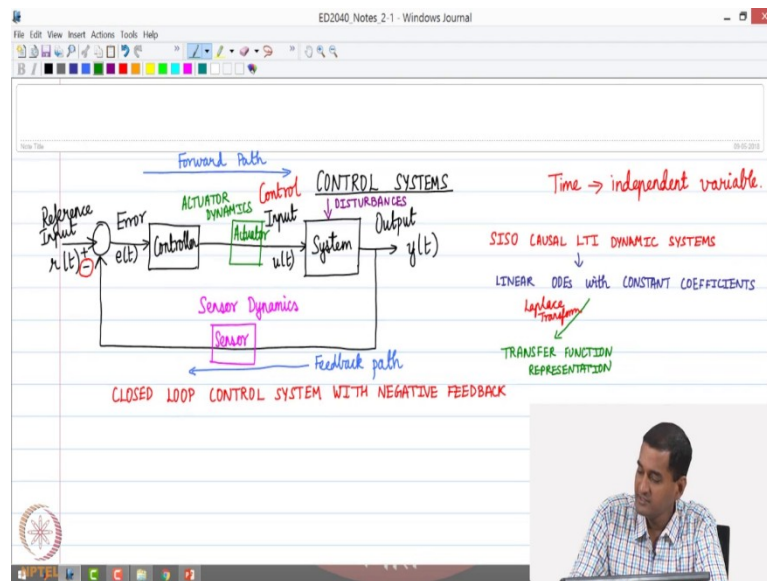 ED2040_Notes_2-1 - Windows Journal
File Edit View Insert Actions Tools Help
B I
Note Title
09-05-2018
Forward Path
CONTROL SYSTEMS
Time → independent variable.
ACTUATOR
DYNAMICS
Control
Input
DISTURBANCES
Reference
Input
Error
Output
r(t)
+
−
e(t)
Controller
Actuator
u(t)
System
y(t)
SISO CAUSAL LTI DYNAMIC SYSTEMS
LINEAR ODEs with CONSTANT COEFFICIENTS
Laplace
Transform
TRANSFER FUNCTION
REPRESENTATION
Sensor Dynamics
Sensor
Feedback path
CLOSED LOOP CONTROL SYSTEM WITH NEGATIVE FEEDBACK
NPTEL